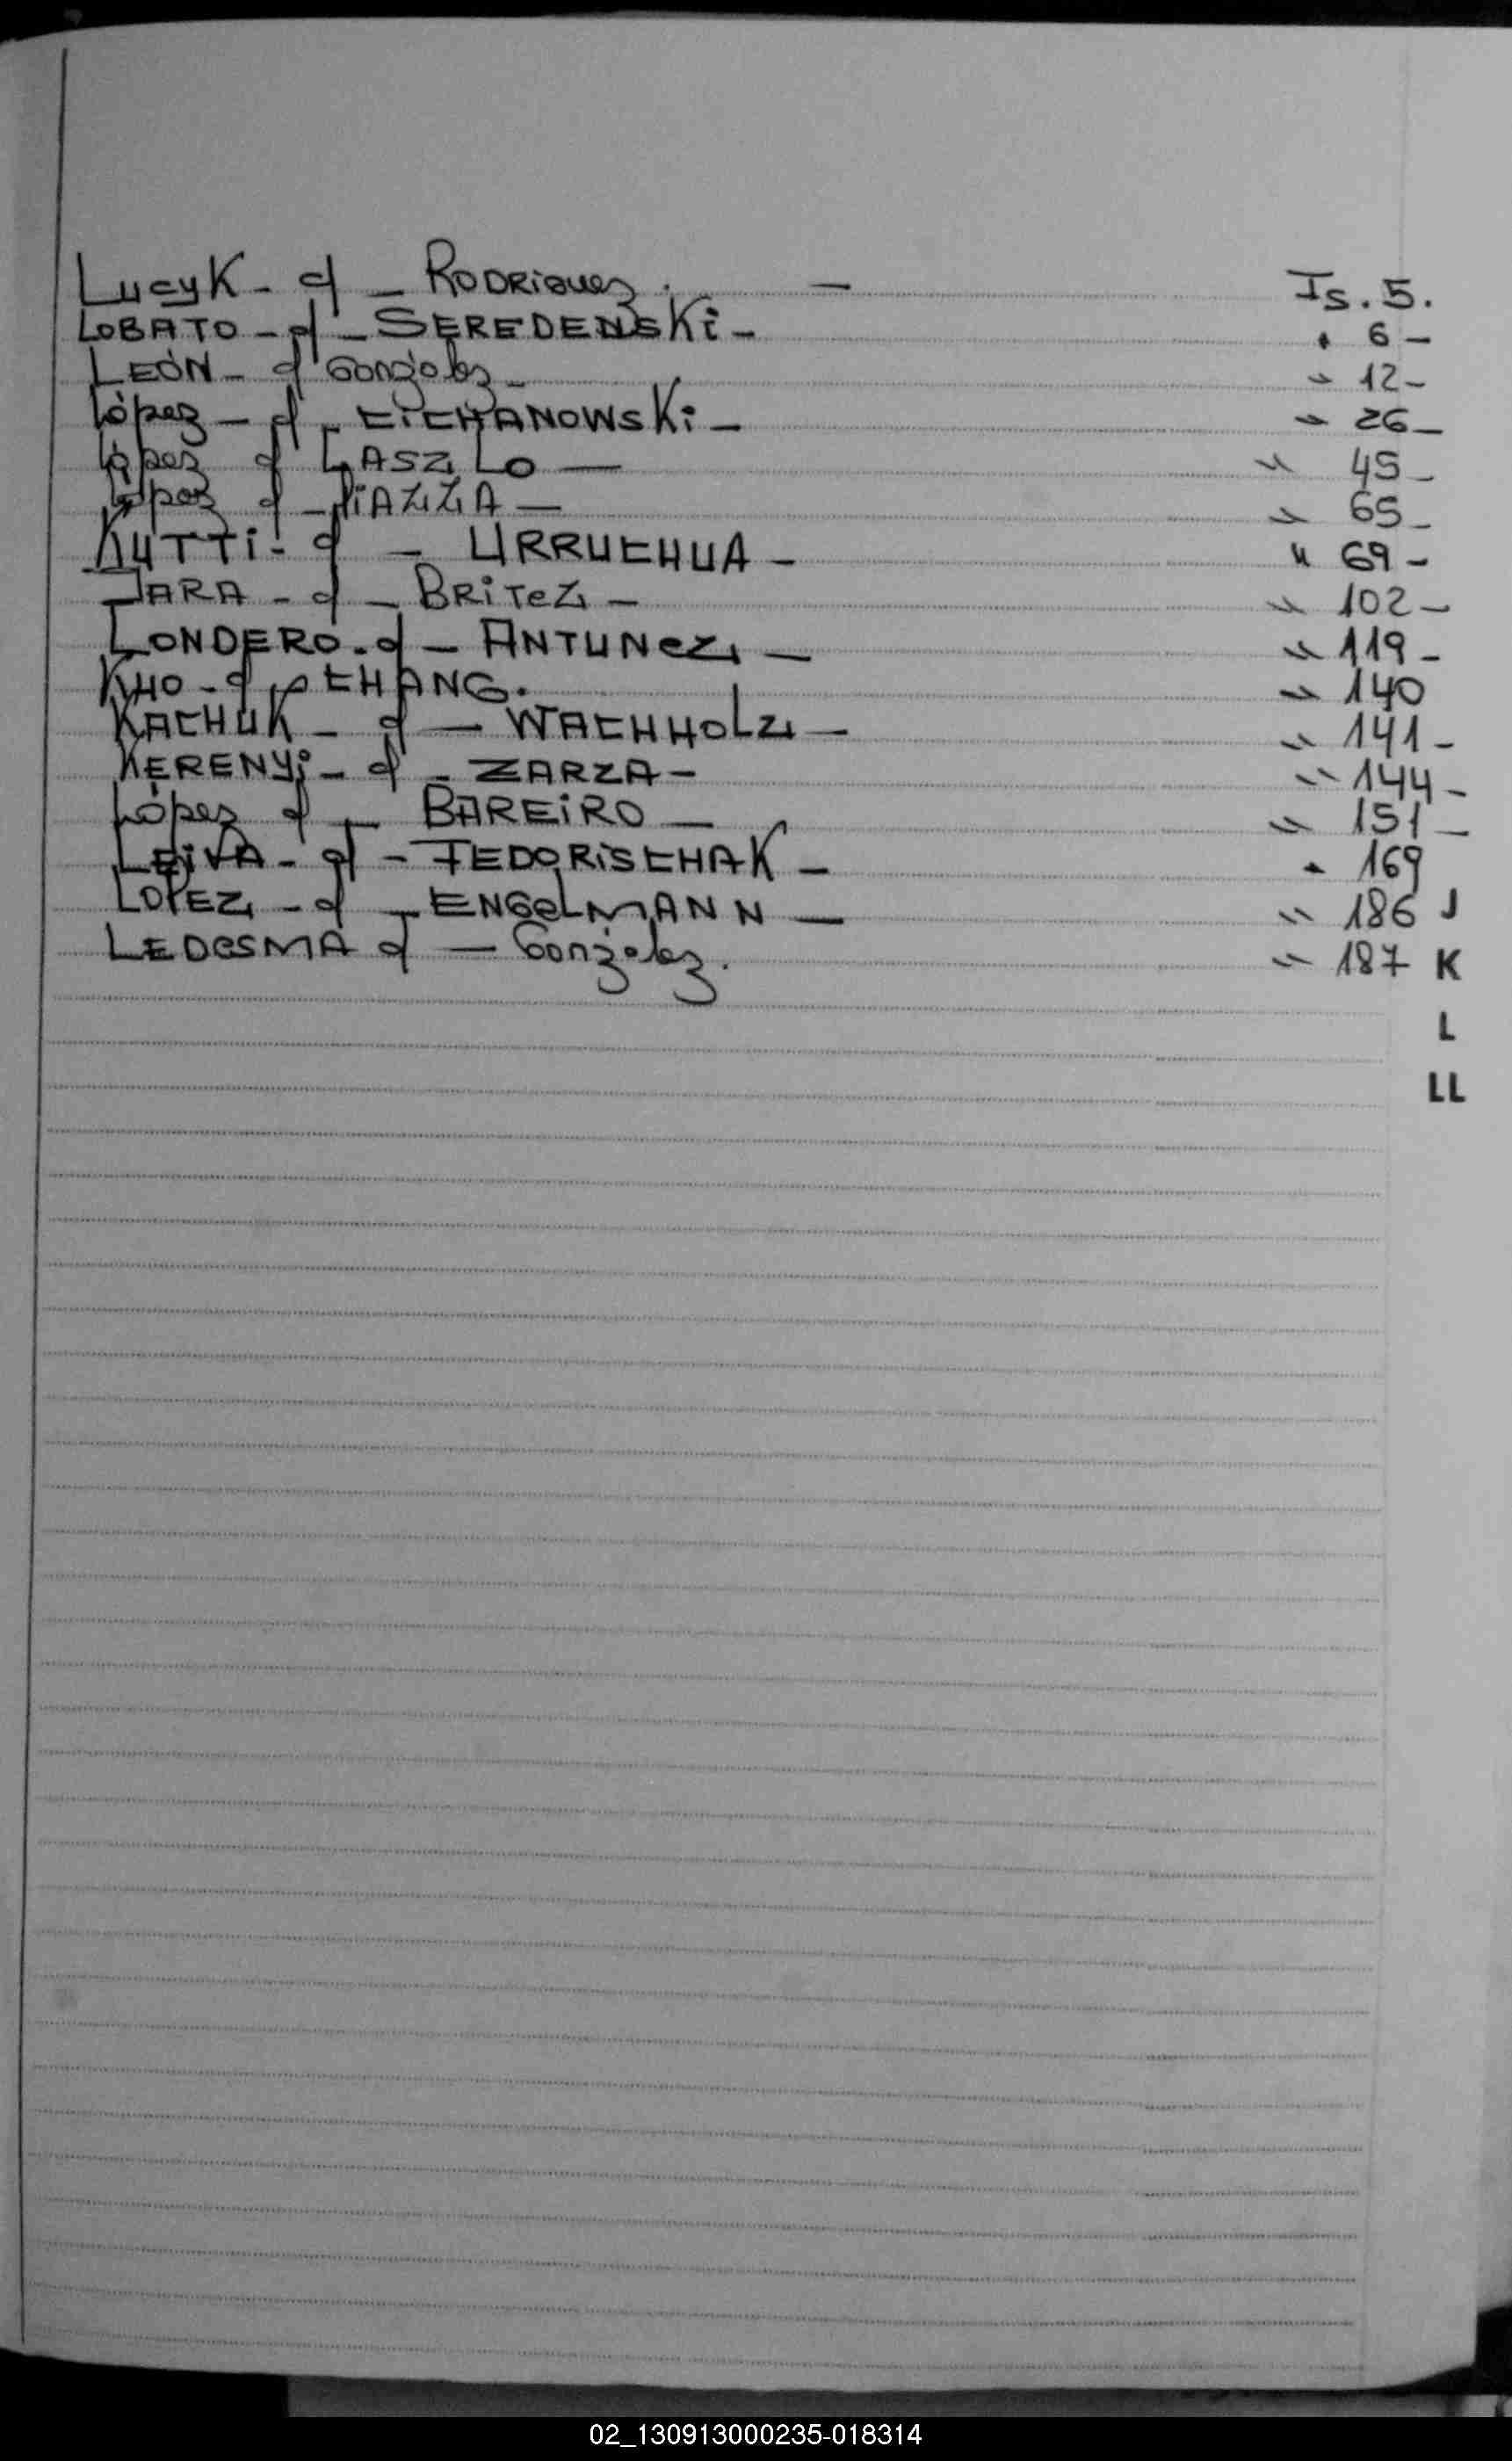 Lucyk - c/ - RODRiguez. - Fs. 5.
LOBATO - c/ - SEREDENSKi - " 6 -
LEÓN - c/ González - " 12 -
López - c/ - CiCHANOWSKi - " 26 -
López c/ LASZLO - " 45 -
López c/ - PiAZZA - " 65 -
KUTTi - c/ - URRUCHUA - " 69 -
JARA - c/ - BRiTez - " 102 -
LONDERO - c/ - ANTUNez - " 119 -
KUO - c/ CHANG. " 140
KACHUK - c/ - WACHHOLZ - " 141 -
KERENYi - c/ - ZARZA - " 144 -
López c/ - BAREiRO - " 151 -
LEiVA - c/ - FEDORiSCHAK - " 169
LOPEZ - c/ - ENGeLMANN - " 186 J
LEDeSMA c/ - González. " 187 K
L
LL
02_130913000235-018314